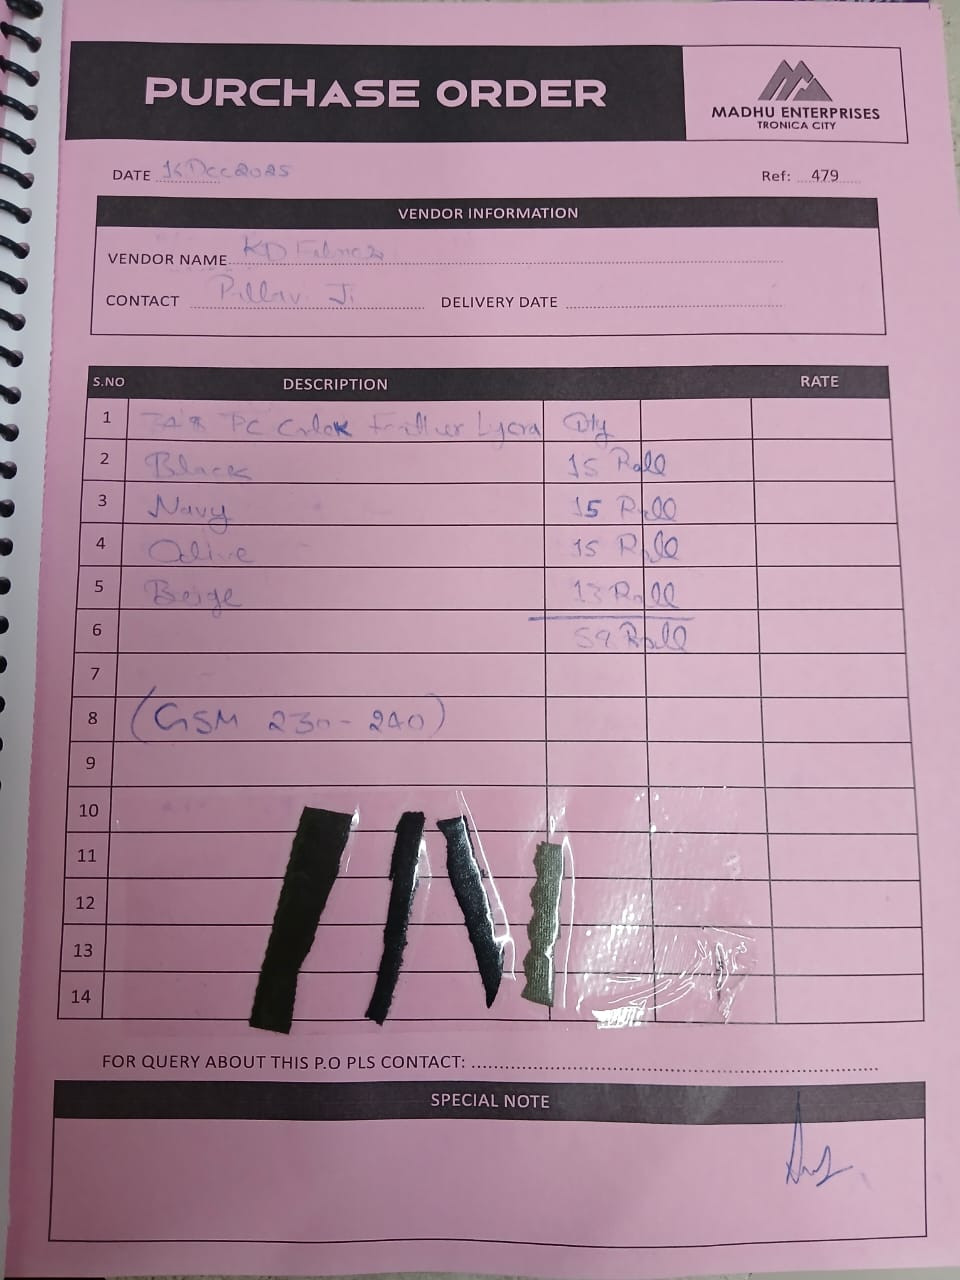 PURCHASE ORDER
MADHU ENTERPRISES
TRONICA CITY
DATE Dec 2025
Ref: 479
VENDOR INFORMATION
VENDOR NAME KD
CONTACT Ji DELIVERY DATE
S.NO DESCRIPTION RATE
1 PC Lycra Qty
2 Black 15 Roll
3 Navy 15 Roll
4 Olive 15 Roll
5 Beige Roll
6 Roll
7
8 (GSM 230-240)
9
10
11
12
13
14
FOR QUERY ABOUT THIS P.O PLS CONTACT:
SPECIAL NOTE